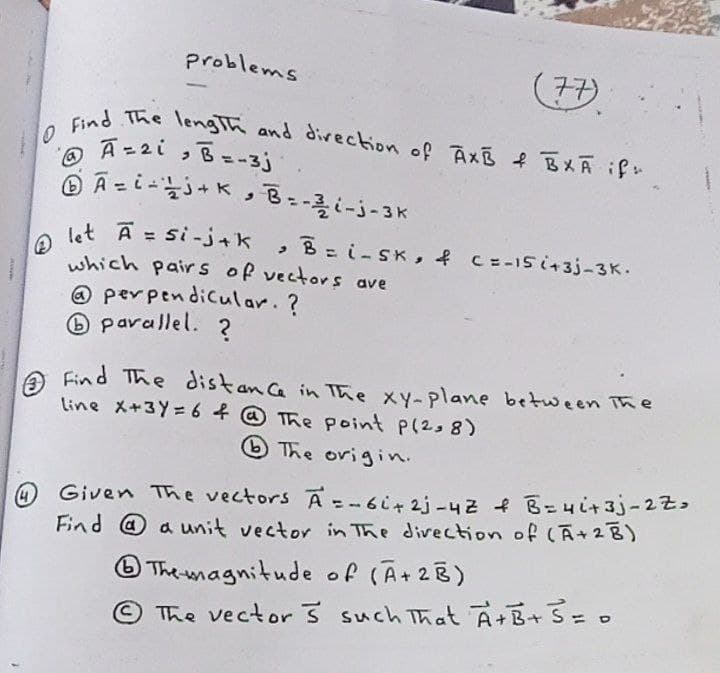 problems
(77)
① Find The length and direction of A̅xB̅ & B̅xA̅ if:
ⓐ A̅ = 2i , B̅ = -3j
ⓑ A̅ = i - ½j + K , B̅ = -3/2 i - j - 3K
② let A̅ = 5i - j + k , B̅ = i - 5K, & C = -15i + 3j - 3K.
which pairs of vectors are
ⓐ perpendicular. ?
ⓑ parallel. ?
③ Find The distance in The xy-plane between The
line x+3Y=6 & ⓐ The point P(2,8)
ⓑ The origin.
④ Given The vectors A⃗ = -6i + 2j - 4Z & B̅ = 4i + 3j - 2Z,
Find ⓐ a unit vector in The direction of (A̅ + 2B̅)
ⓑ The magnitude of (A̅ + 2B̅)
ⓒ The vector S⃗ such That A⃗ + B⃗ + S⃗ = 0